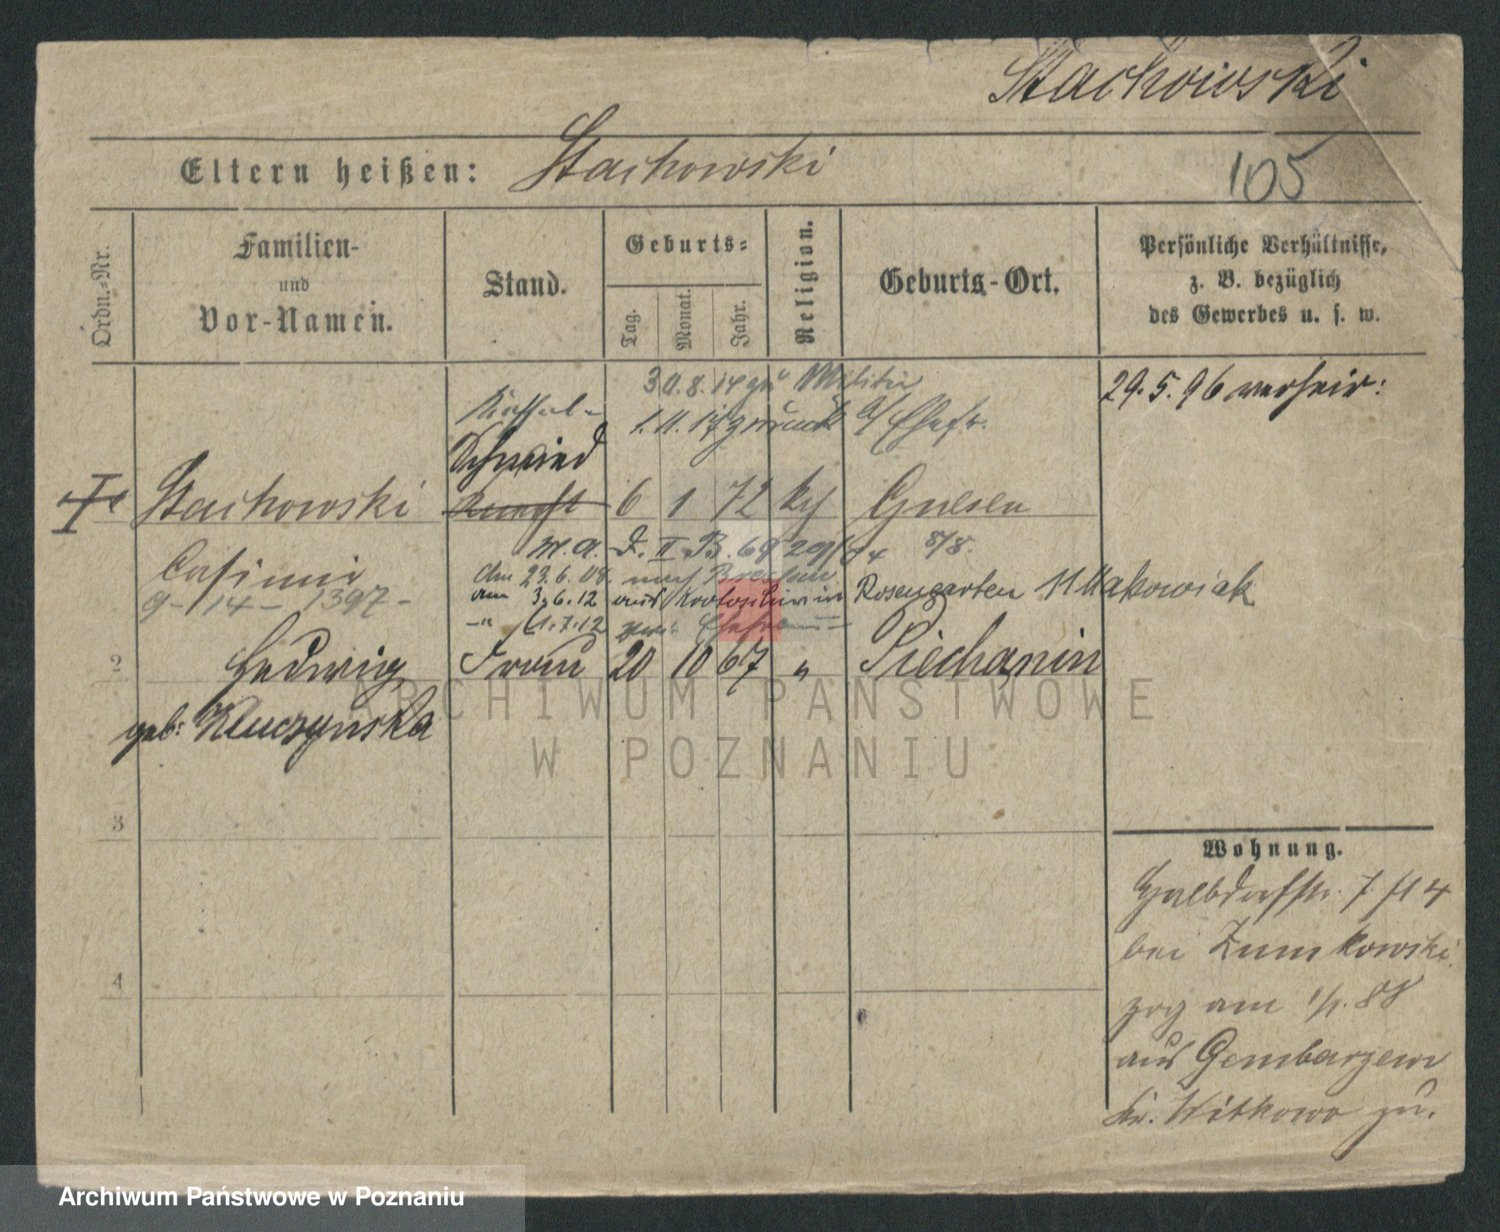 Stachowski
105
Eltern heißen: Stachowski
Ordn.-Nr.
Familien-
und
Vor-Namen.
Stand.
Geburts-
Tag.
Monat.
Jahr.
Religion.
Geburts-Ort.
Persönliche Verhältnisse,
z. B. bezüglich
des Gewerbes u. s. w.
30.8.14 zu Militär
29.5.96 verheir:
1.11.17 zurück
Schmied
Stachowski
6 1 72 kh Gnesen
Casimir
9-14-1397-
den 23.6.08. nach
am 3.6.12 aus Krotoschin in Rosengarten Makowiak
1.7.12
2 Hedwig Frau 20 10 67 " Piechanin
geb: Kluczynska
3
4
Wohnung.
7
bei Zumkowski
zog am 88
aus Gembarzewo
Kr. Witkowo zu.
ARCHIWUM PAŃSTWOWE
W POZNANIU
Archiwum Państwowe w Poznaniu